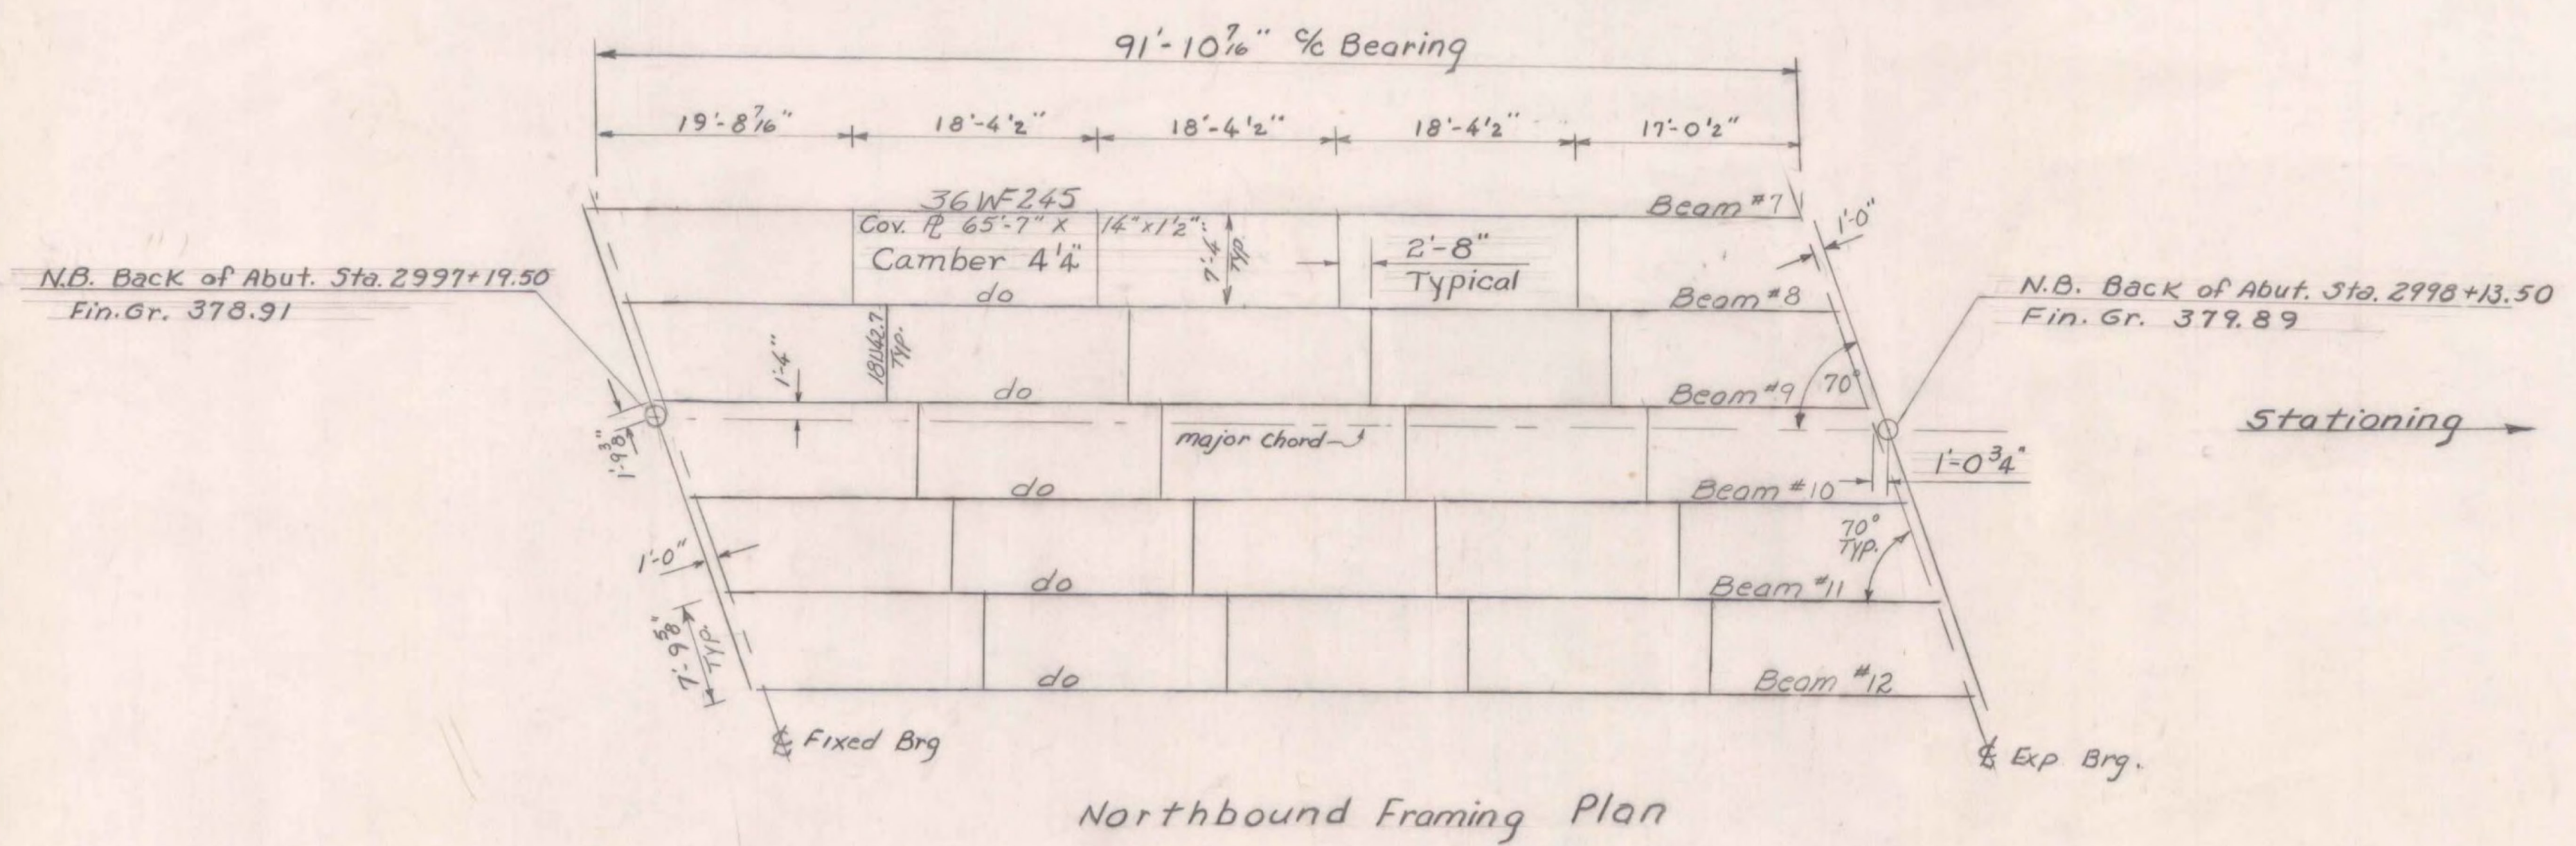 91'-10 7/16" c/c Bearing
19'-8 7/16" 18'-4 1/2" 18'-4 1/2" 18'-4 1/2" 17'-0 1/2"
36WF245
Beam #7
Cov. PL 65'-7" x 14" x 1 1/2"
Camber 4 1/4"
7'-4"
Typ.
2'-8"
Typical
1'-0"
do
Beam #8
N.B. Back of Abut. Sta. 2997+19.50
Fin. Gr. 378.91
N.B. Back of Abut. Sta. 2998+13.50
Fin. Gr. 379.89
18U42.7
Typ.
1'-4"
do
Beam #9
70°
1'-9 3/8"
major chord
Stationing
1'-0 3/4"
do
Beam #10
1'-0"
70°
Typ.
do
Beam #11
7'-9 5/8"
Typ.
do
Beam #12
℄ Fixed Brg
℄ Exp Brg.
Northbound Framing Plan